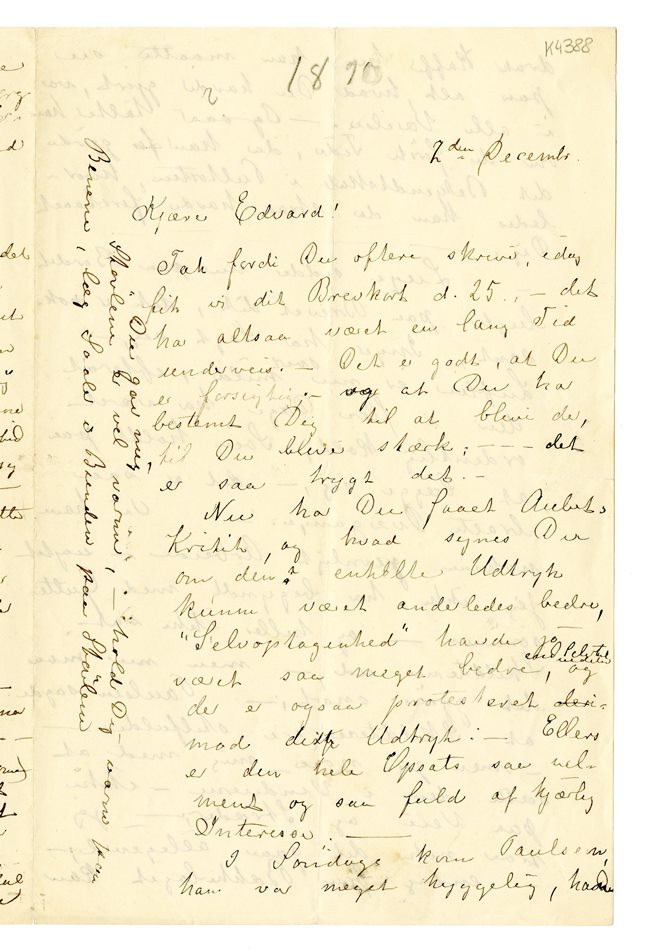 K4388
1890
2den Decembr.
Kjære Edvard!
Tak fordi Du oftere skriver, idag
fik vi dit Brevkort d. 25., – det
har altsaa været en lang Tid
underveis. – Det er godt, at Du
er forsigtig; – og at Du har
bestemt Dig til at blive der,
til Du bliver stærk; – – – det
er saa – trygt det. –
Nu har Du faaet Auberts
Kritik, og hvad synes Du
om den? enkelte Udtryk
kunne været anderledes bedre,
"Selvoptagenhed" havde jo
været saa meget bedre, end
og
der er ogsaa protesteret
mod dette Udtryk. – Ellers
er den hele Opsats saa vel-
ment og saa fuld af kjærlig
Interesse. –
I Søndags kom Paulsen,
han var meget hyggelig, havde
Du gav mig,
Støvlene er vel varm; – hold Dig varm paa
Benene, læg Saaler i Bunden paa Støvlene